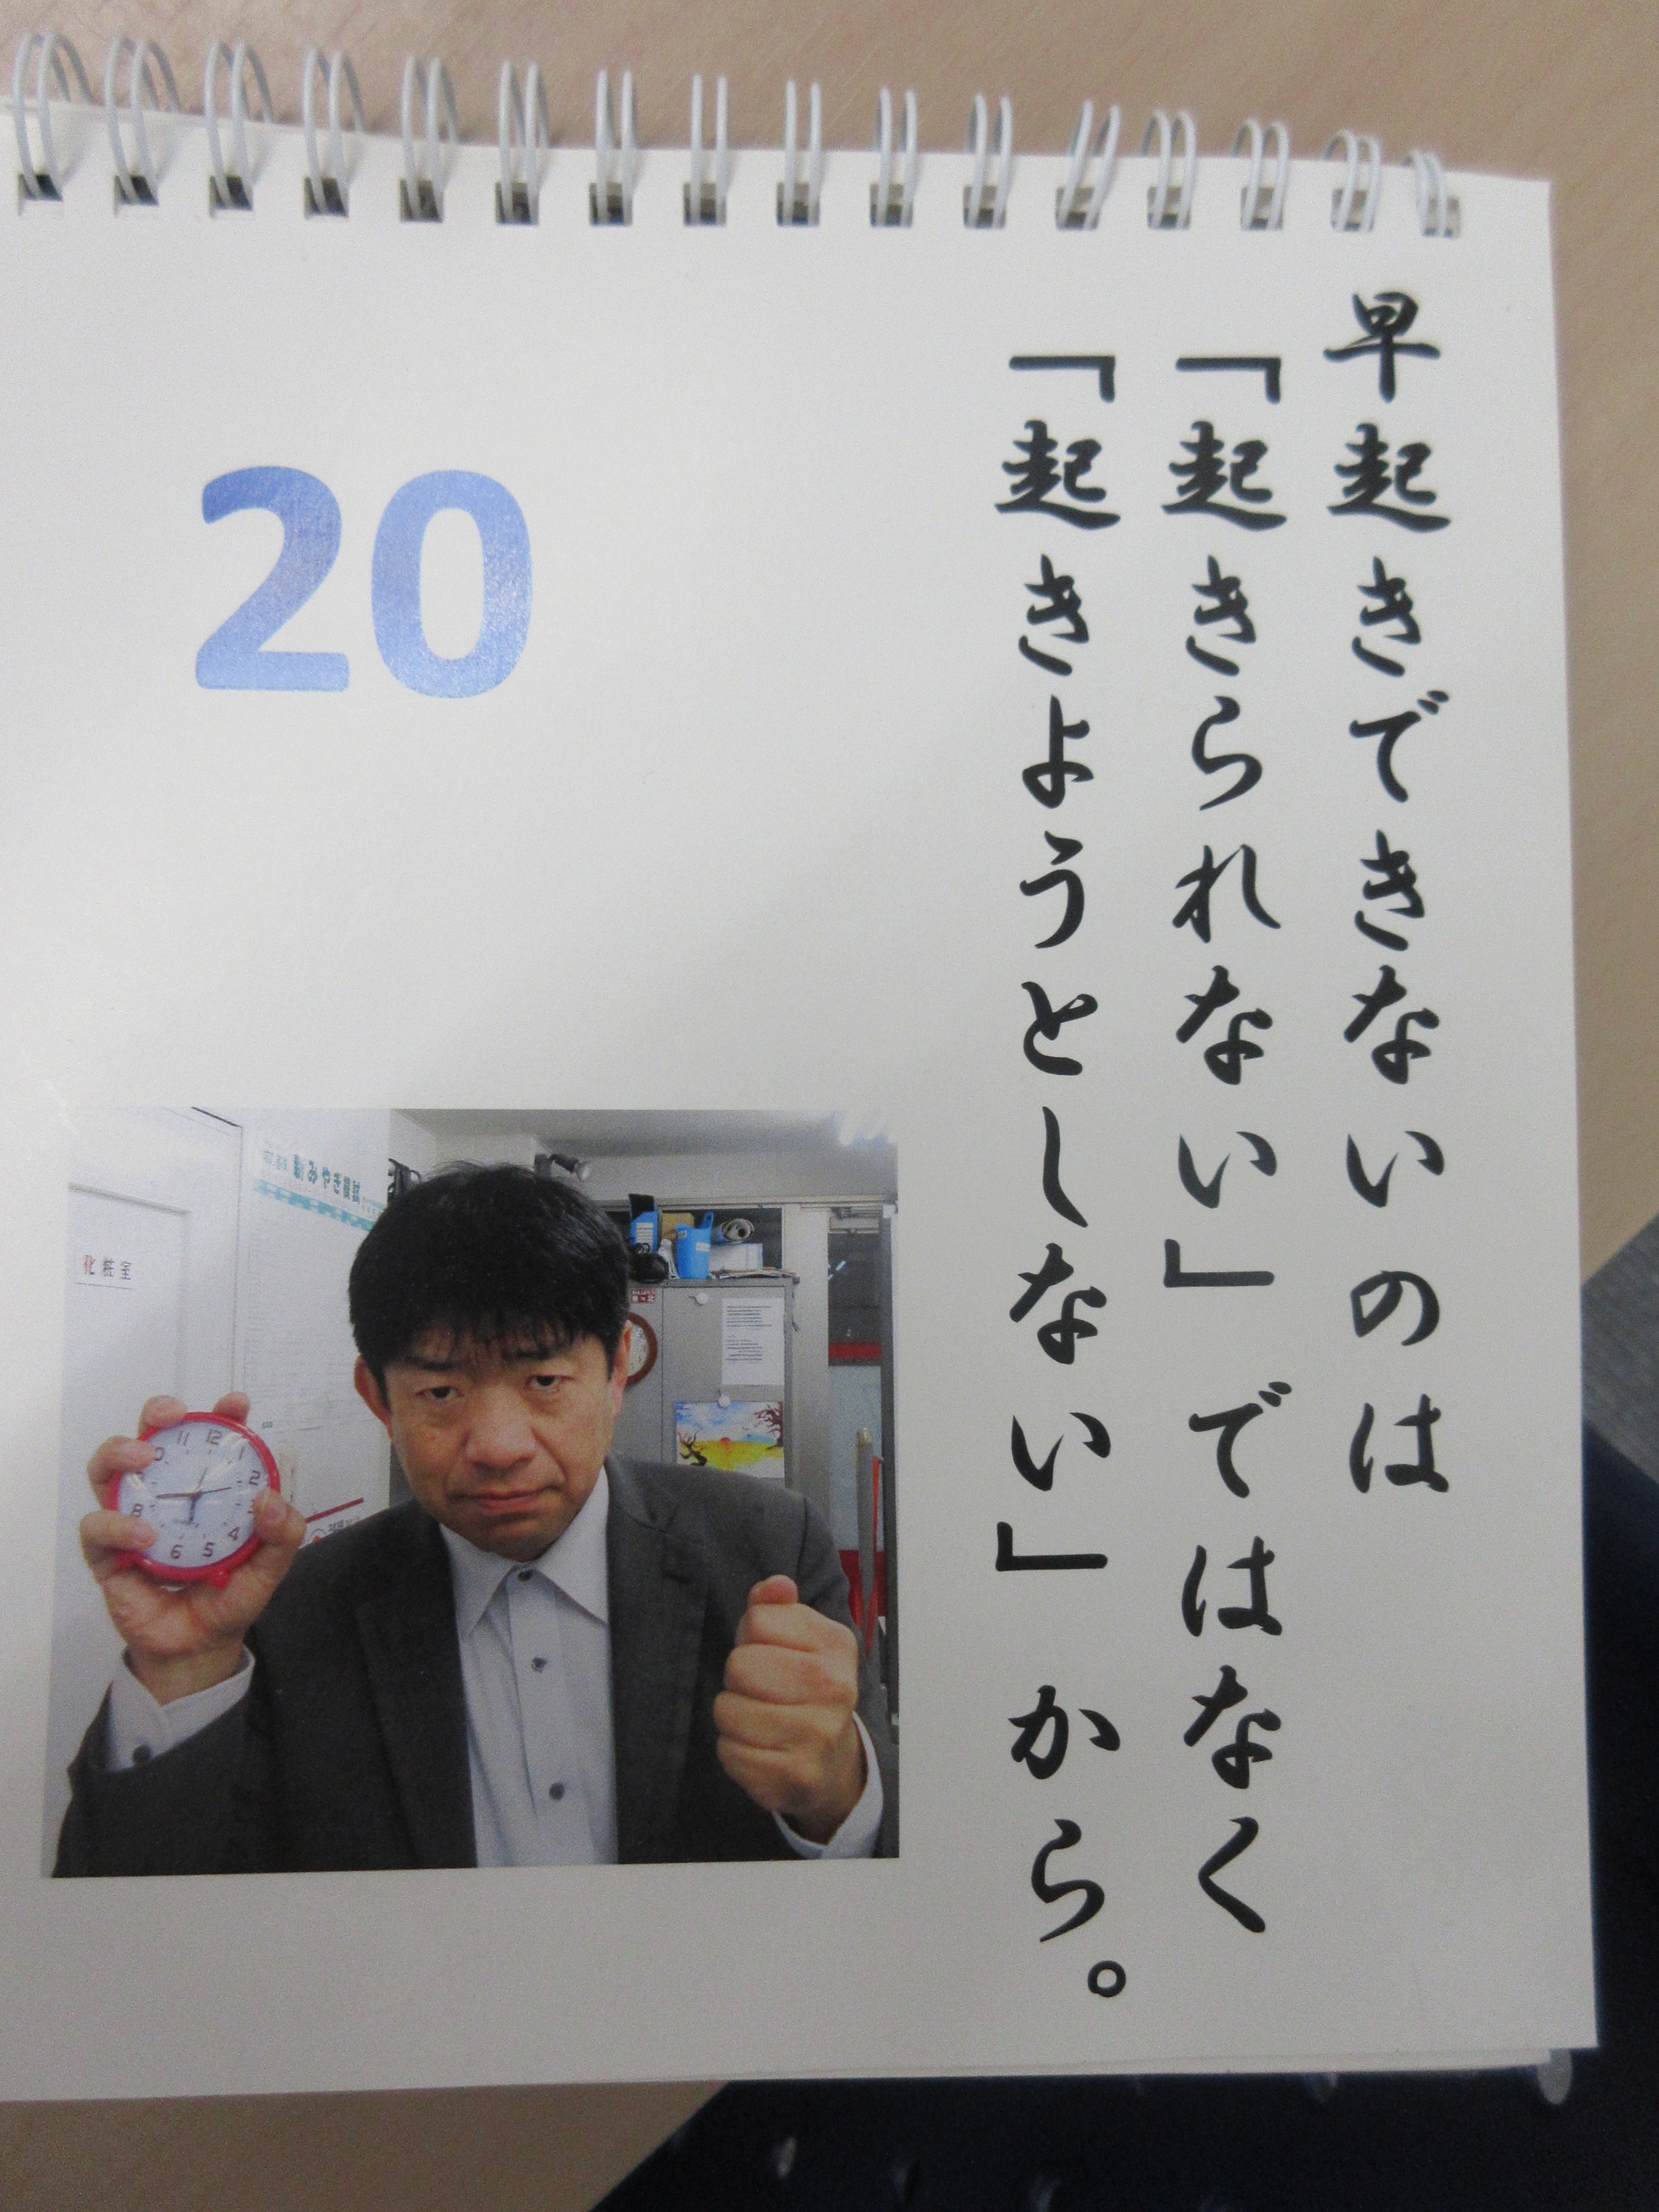 早起きできないのは
「起きられない」ではなく
「起きようとしない」から。
20
化粧室
11 12 1
2
8
4
6 5